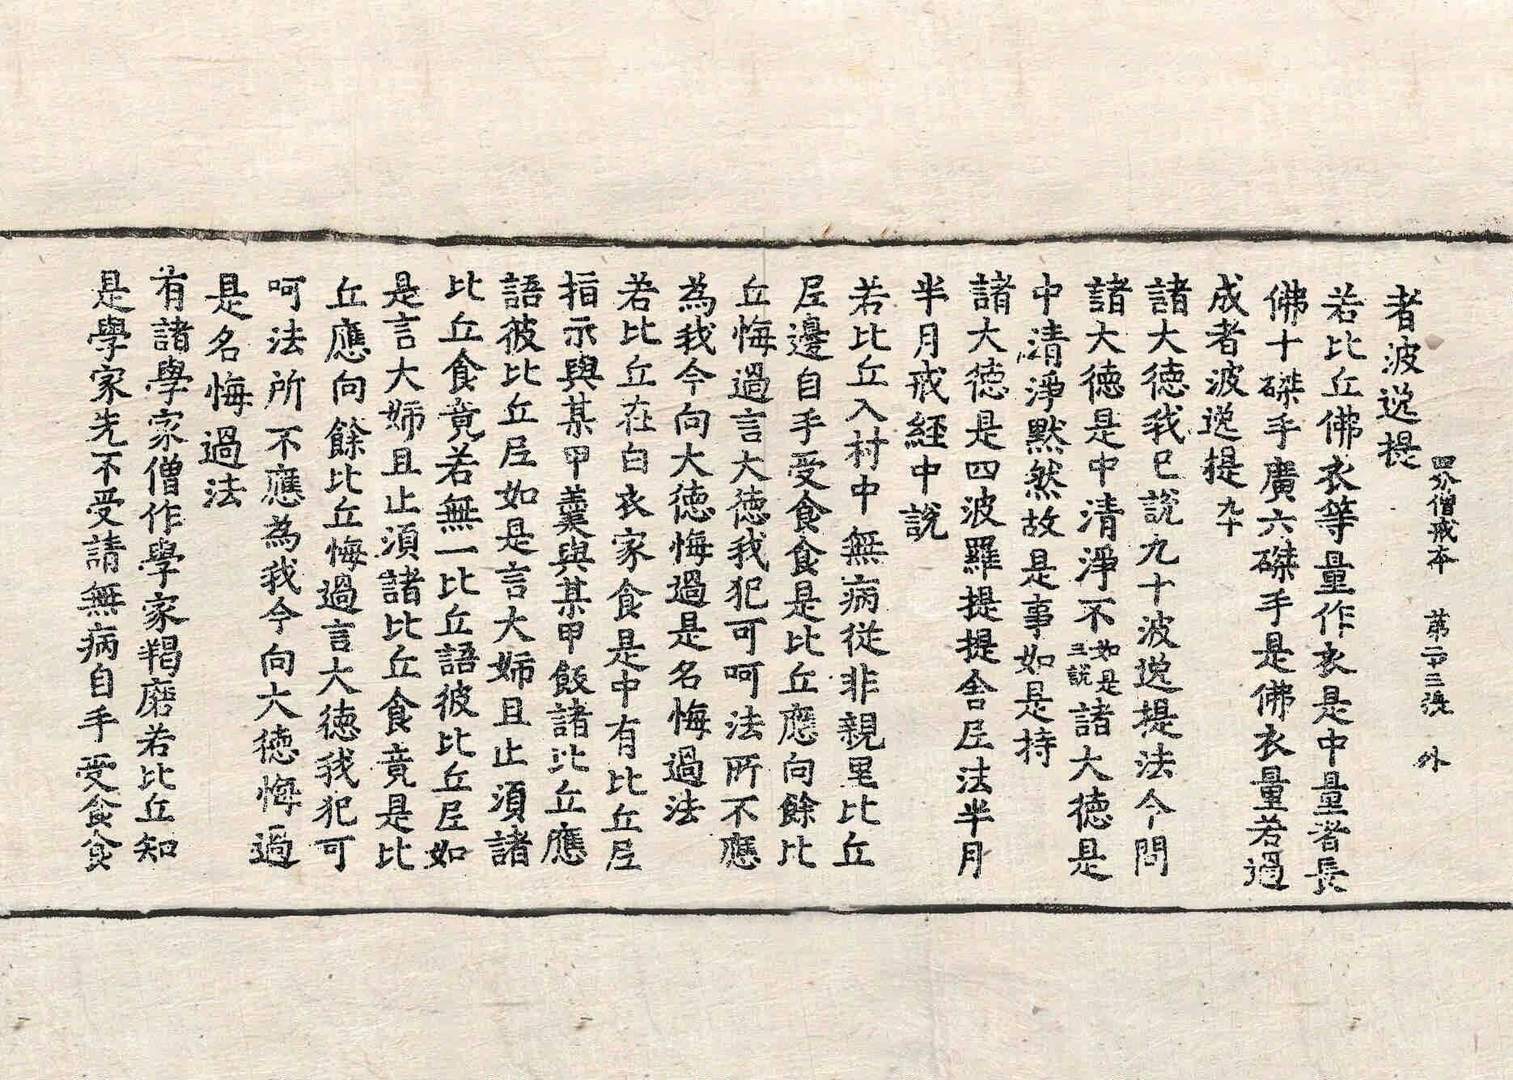 四分僧戒本　第二十三張　外
者波逸提
若比丘佛衣等量作衣是中量者長
佛十磔手廣六磔手是佛衣量若過
成者波逸提九十
諸大德我已說九十波逸提法今問
諸大德是中清淨不如是三說諸大德是
中清淨默然故是事如是持
諸大德是四波羅提提舍尼法半月
半月戒經中說
若比丘入村中無病從非親里比丘
尼邊自手受食食是比丘應向餘比
丘悔過言大德我犯可呵法所不應
為我今向大德悔過是名悔過法
若比丘在白衣家食是中有比丘尼
指示與某甲羹與某甲飯諸比丘應
語彼比丘尼如是言大姊且止須諸
比丘食竟若無一比丘語彼比丘尼如
是言大姊且止須諸比丘食竟是比
丘應向餘比丘悔過言大德我犯可
呵法所不應為我今向大德悔過
是名悔過法
有諸學家僧作學家羯磨若比丘知
是學家先不受請無病自手受食食